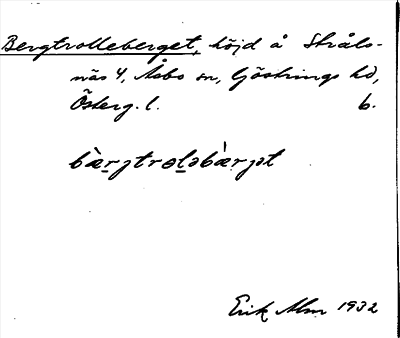 Bergtrolleberget, höjd å Stråls-
näs 4, Åsbo sn, Göstrings hd,
Österg. l. b.
bæ̀rgtrɵləbæ̀rgət
Erik Alm 1932